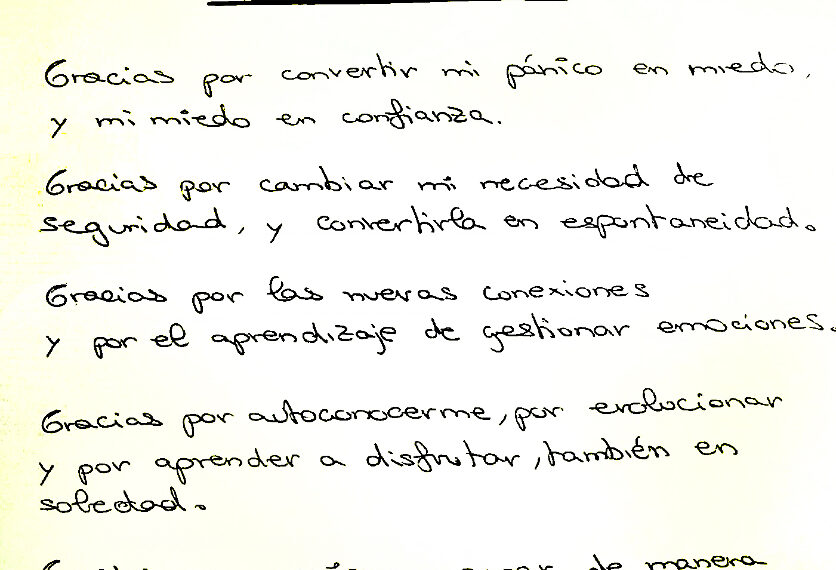 Gracias por convertir mi pánico en miedo,
y mi miedo en confianza.
Gracias por cambiar mi necesidad de
seguridad, y convertirla en espontaneidad.
Gracias por las nuevas conexiones
y por el aprendizaje de gestionar emociones.
Gracias por autoconocerme, por evolucionar
y por aprender a disfrutar, también en
soledad.
de manera